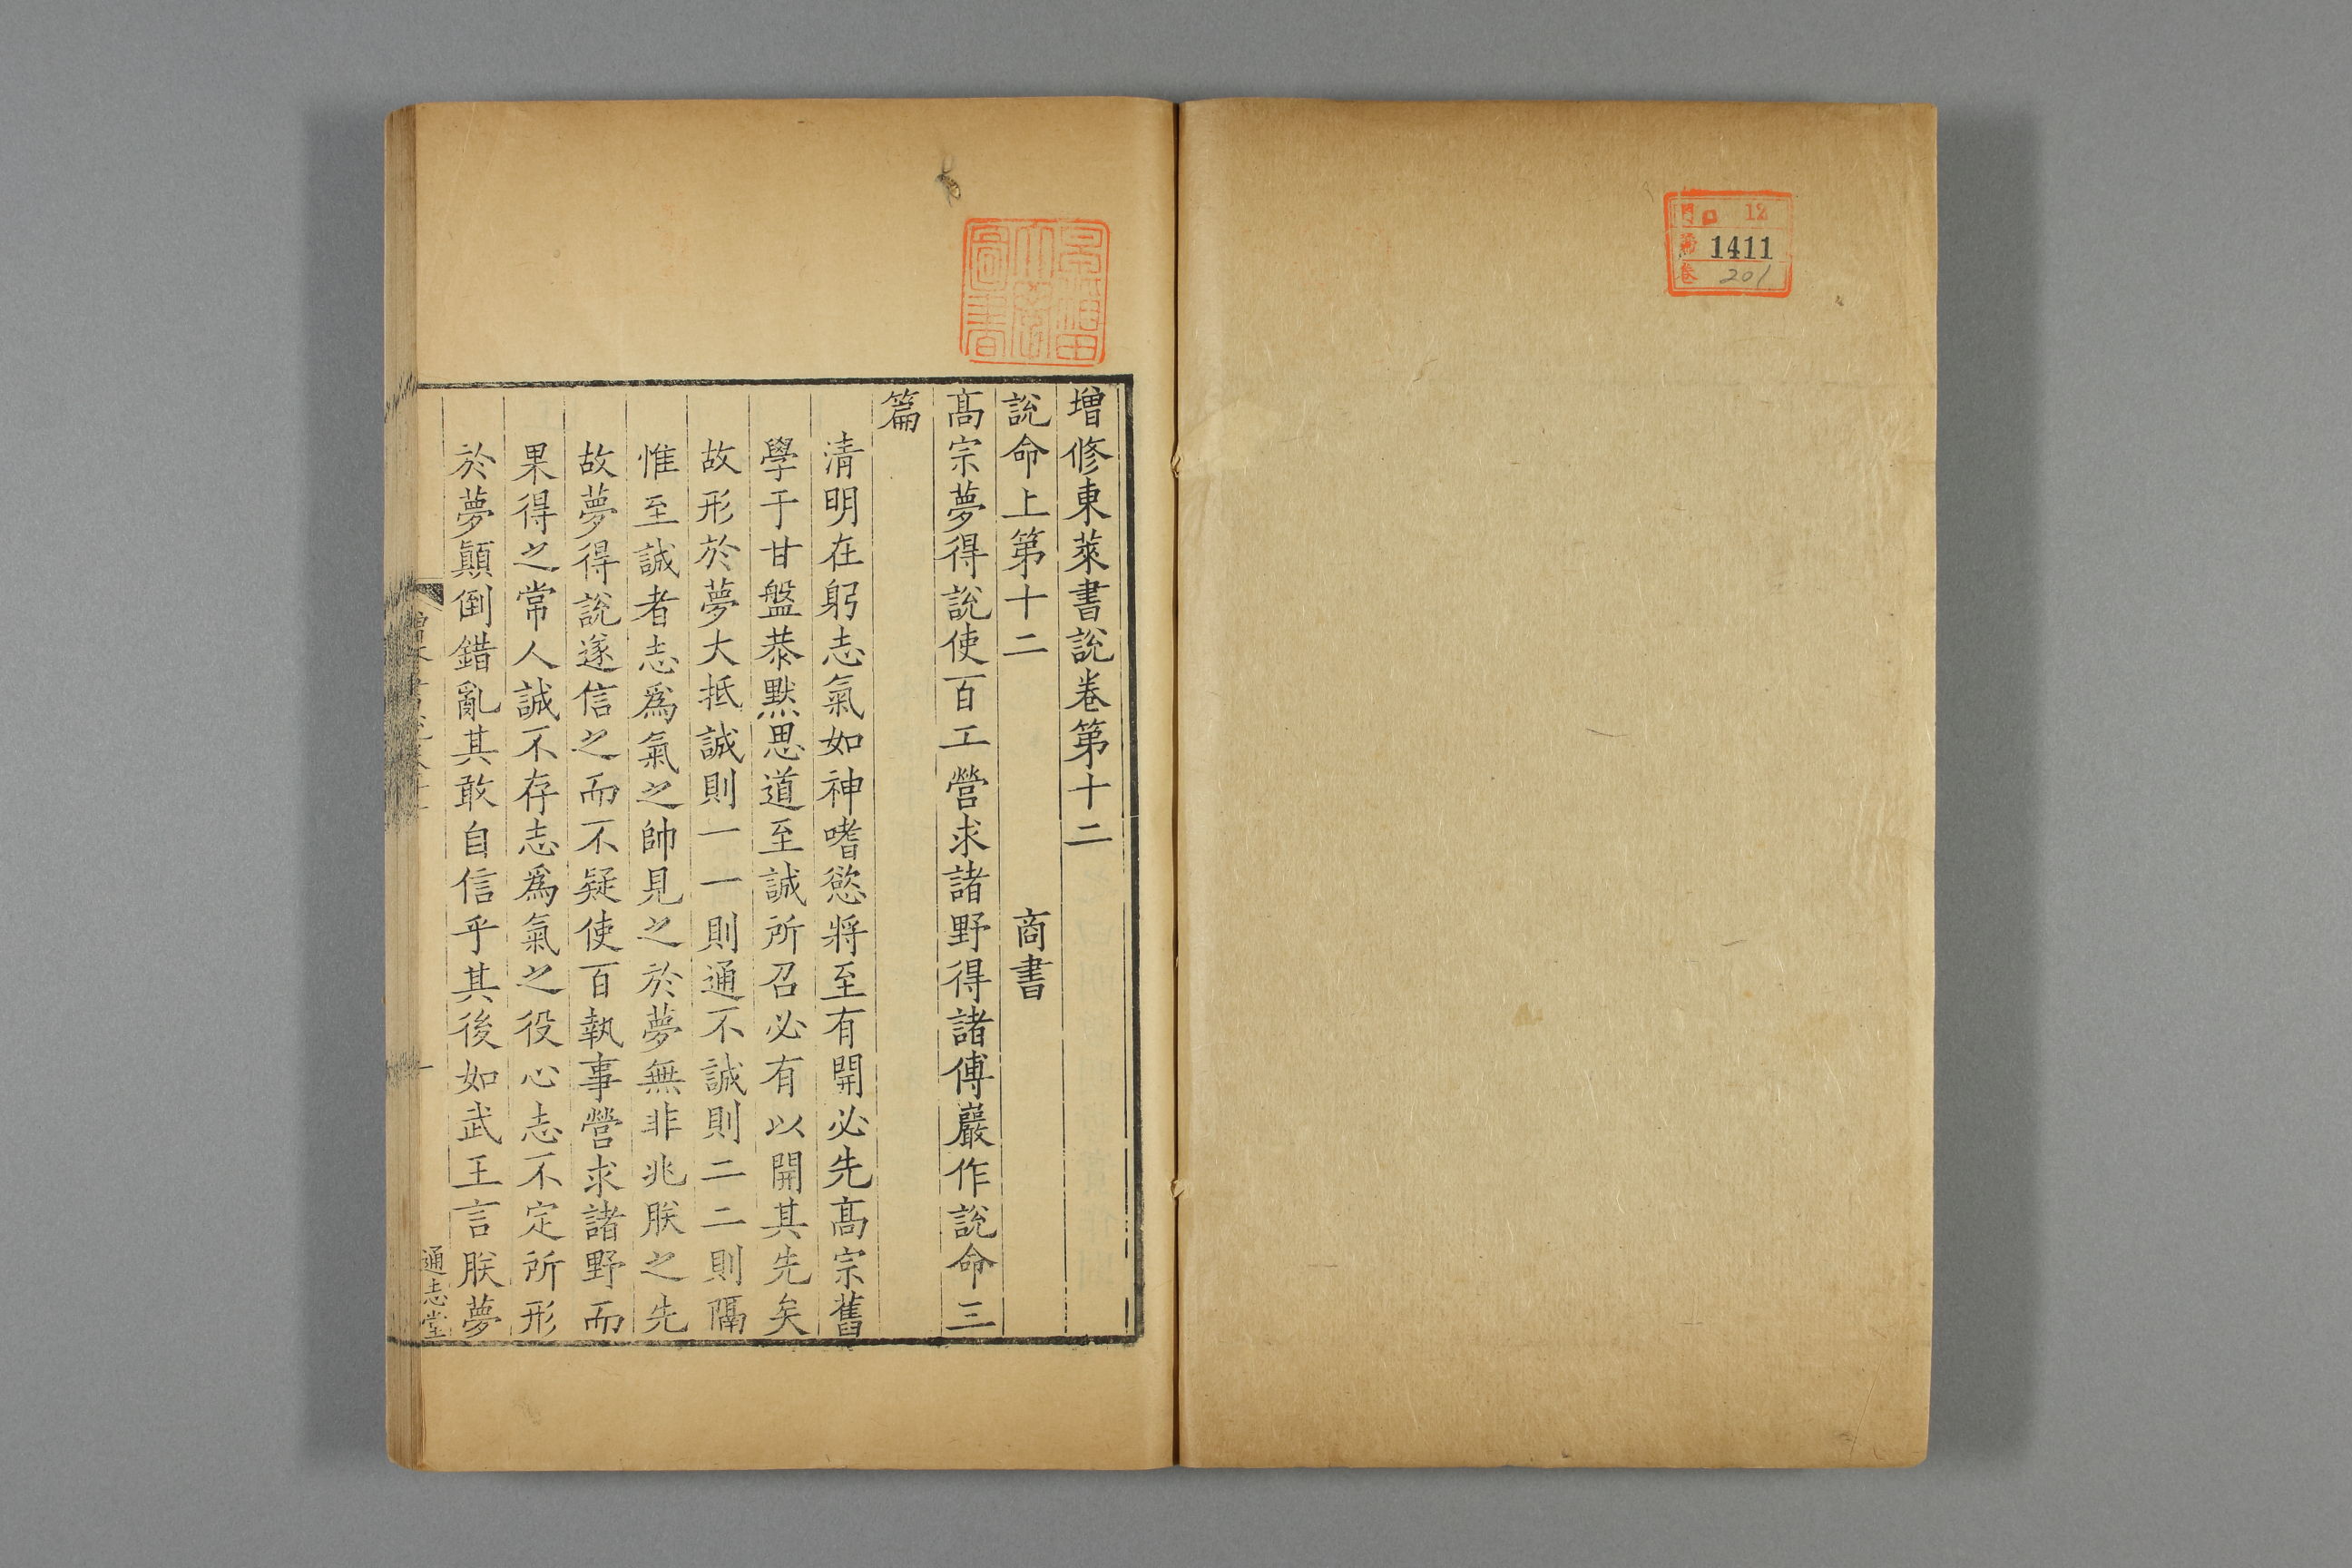 門 口 12
號 1411
卷 201
早稻田大學圖書
增修東萊書說卷第十二
說命上第十二 商書
髙宗夢得說使百工營求諸野得諸傅巖作說命三
篇
清明在躬志氣如神嗜慾將至有開必先髙宗舊
學于甘盤恭黙思道至誠所召必有以開其先矣
故形於夢大抵誠則一一則通不誠則二二則隔
惟至誠者志爲氣之帥見之於夢無非兆朕之先
故夢得說遂信之而不疑使百執事營求諸野而
果得之常人誠不存志爲氣之役心志不定所形
於夢顛倒錯亂其敢自信乎其後如武王言朕夢
通志堂